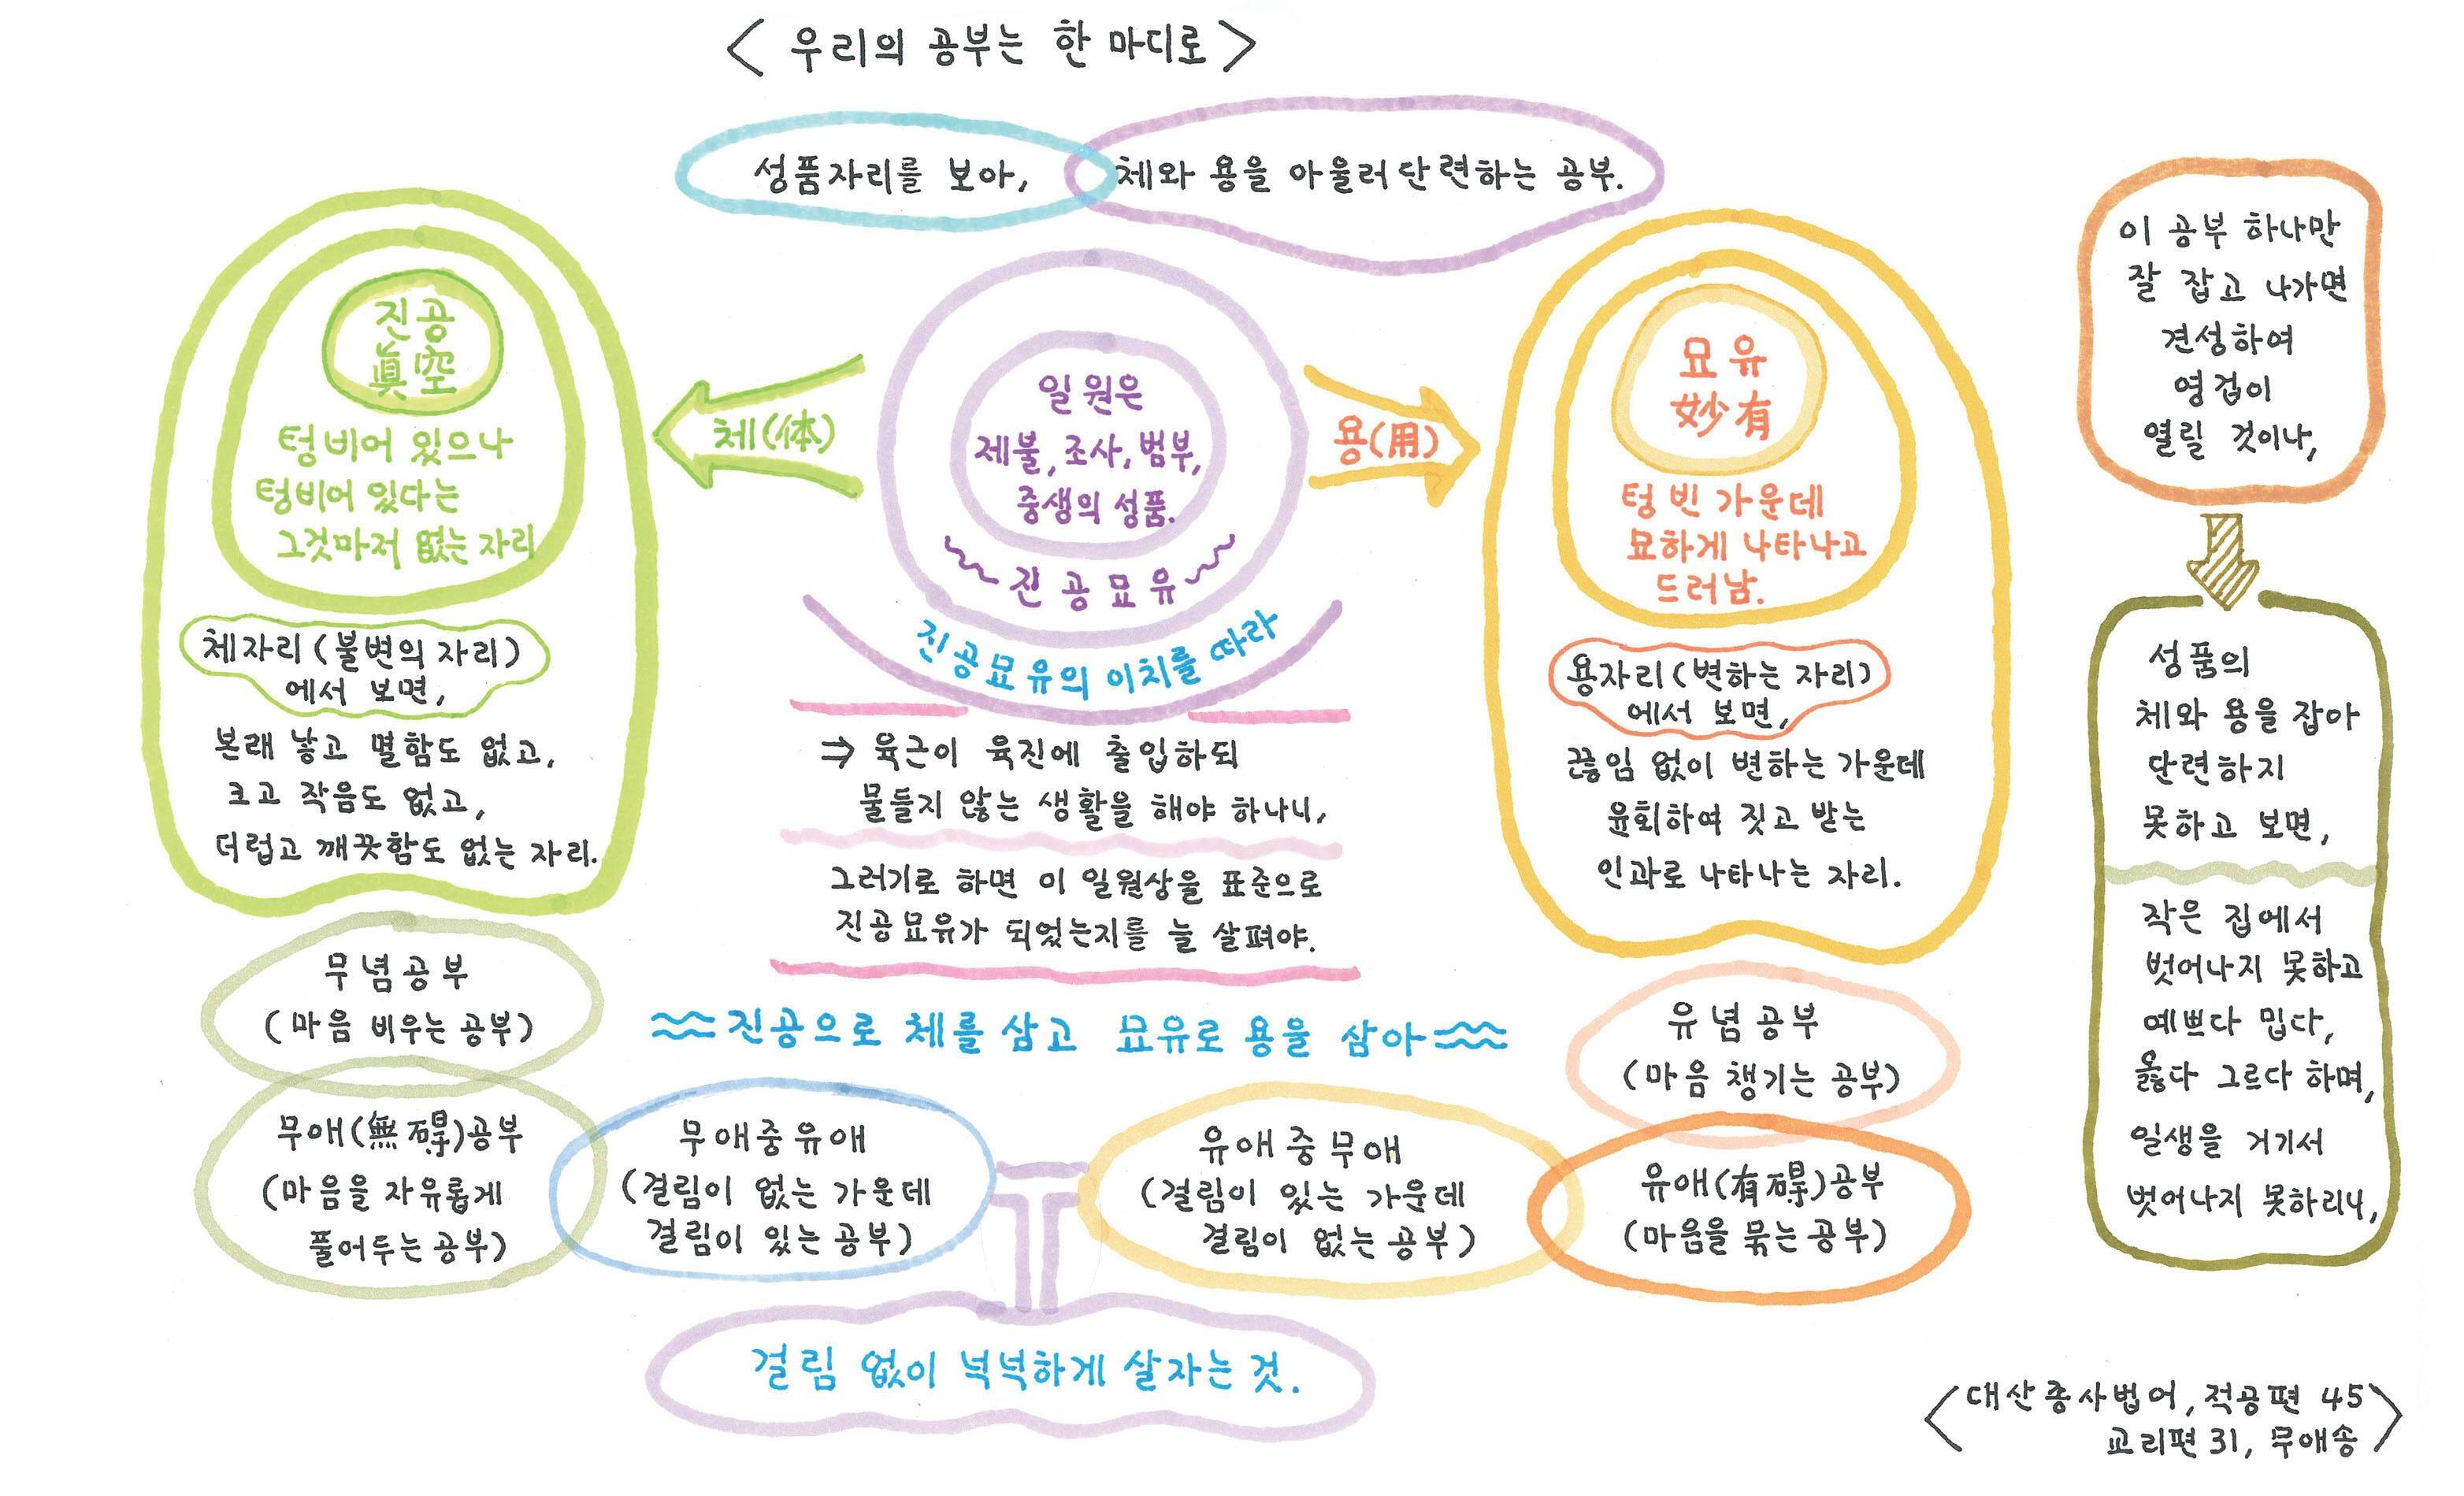 < 우리의 공부는 한 마디로 >
성품자리를 보아,
체와 용을 아울러 단련하는 공부.
진공
眞空
텅 비어 있으나
텅비어 있다는
그것마저 없는 자리
체자리 (불변의 자리)
에서 보면,
본래 낳고 멸함도 없고,
크고 작음도 없고,
더럽고 깨끗함도 없는 자리.
체(体)
일원은
제불, 조사, 범부,
중생의 성품.
진공묘유
진공묘유의 이치를 따라
⇒ 육근이 육진에 출입하되
물들지 않는 생활을 해야 하나니,
그러기로 하면 이 일원상을 표준으로
진공묘유가 되었는지를 늘 살펴야.
용(用)
묘유
妙有
텅 빈 가운데
묘하게 나타나고
드러남.
용자리 (변하는 자리)
에서 보면,
끊임 없이 변하는 가운데
윤회하여 짓고 받는
인과로 나타나는 자리.
무념공부
(마음 비우는 공부)
무애(無碍)공부
(마음을 자유롭게
풀어두는 공부)
진공으로 체를 삼고 묘유로 용을 삼아
무애중유애
(걸림이 없는 가운데
걸림이 있는 공부)
유애중무애
(걸림이 있는 가운데
걸림이 없는 공부)
유념공부
(마음 챙기는 공부)
유애(有碍)공부
(마음을 묶는 공부)
걸림 없이 넉넉하게 살자는 것.
이 공부 하나만
잘 잡고 나가면
견성하여
영겁이
열릴 것이나,
성품의
체와 용을 잡아
단련하지
못하고 보면,
작은 집에서
벗어나지 못하고
예쁘다 밉다,
옳다 그르다 하며,
일생을 거기서
벗어나지 못하리니,
<대산종사법어, 적공편 45
교리편 31, 무애송>